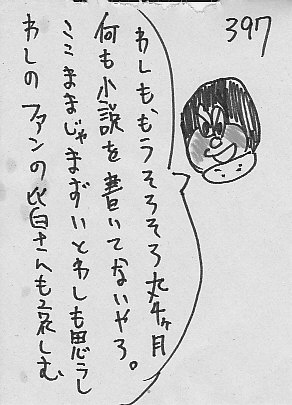 397
わしも、もうそろそろ丸4ヶ月
何も小説を書いてないやろ。
ここままじゃまずいとわしも思うし
わしのファンの皆さんも哀しむ